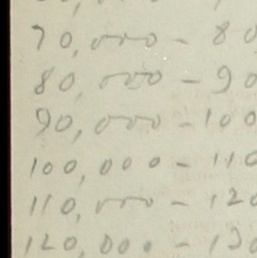 70,000 - 80
80,000 - 90
90,000 - 100
100,000 - 110
110,000 - 120
120,000 - 130